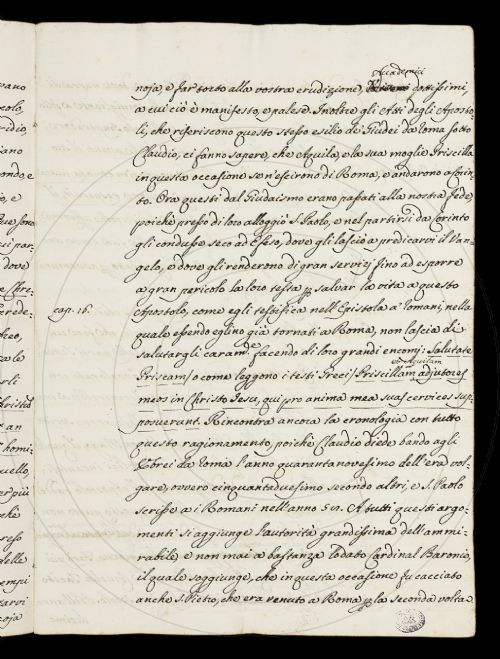 Accademici
noja, e far torto alla vostra erudizione, dottissimi,
a cui ciò è manifesto, e palese. Inoltre gli Atti degli Aposto-
li, che riferiscono questo stesso esilio de' Giudei da Roma sotto
Claudio, ci fanno sapere, che Aquila, e la sua moglie Priscilla
in questa occasione se n'escirono di Roma, e andarono a Corin-
to. Ora questi dal Giudaismo erano passati alla nostra fede,
poichè presso di loro alloggiò S. Paolo, e nel partirsi da Corinto
gli condusse seco ad Efeso, dove gli lasciò a predicarvi il Van-
gelo, e dove gli renderono di gran servizj fino ad esporre
a gran pericolo la loro testa p salvar la vita a questo
cap. 16. Apostolo, come egli testifica nell'Epistola a' Romani, nella
quale essendo eglino già tornati a Roma, non lascia di
salutargli caram.te facendo di loro grandi encomj: Salutate
et Aquilam
Priscam/o come leggono i testi Greci/Priscillam adjutores
meos in Christo Jesu, qui pro anima mea suas cervices sup-
posuerunt. Rincontra ancora la cronologia con tutto
questo ragionamento, poichè Claudio diede bando agli
Ebrei da Roma l'anno quarantanovesimo dell'era vol-
gare, ovvero cinquantaduesimo secondo altri, e S. Paolo
scrisse a i Romani nell'anno 58. A tutti questi argo-
menti si aggiunge l'autorità grandissima dell'ammi-
rabile, e non mai a bastanza lodato Cardinal Baronio,
il quale soggiunge, che in questa occasione fu cacciato
anche S. Pietro, che era venuto a Roma p la seconda volta